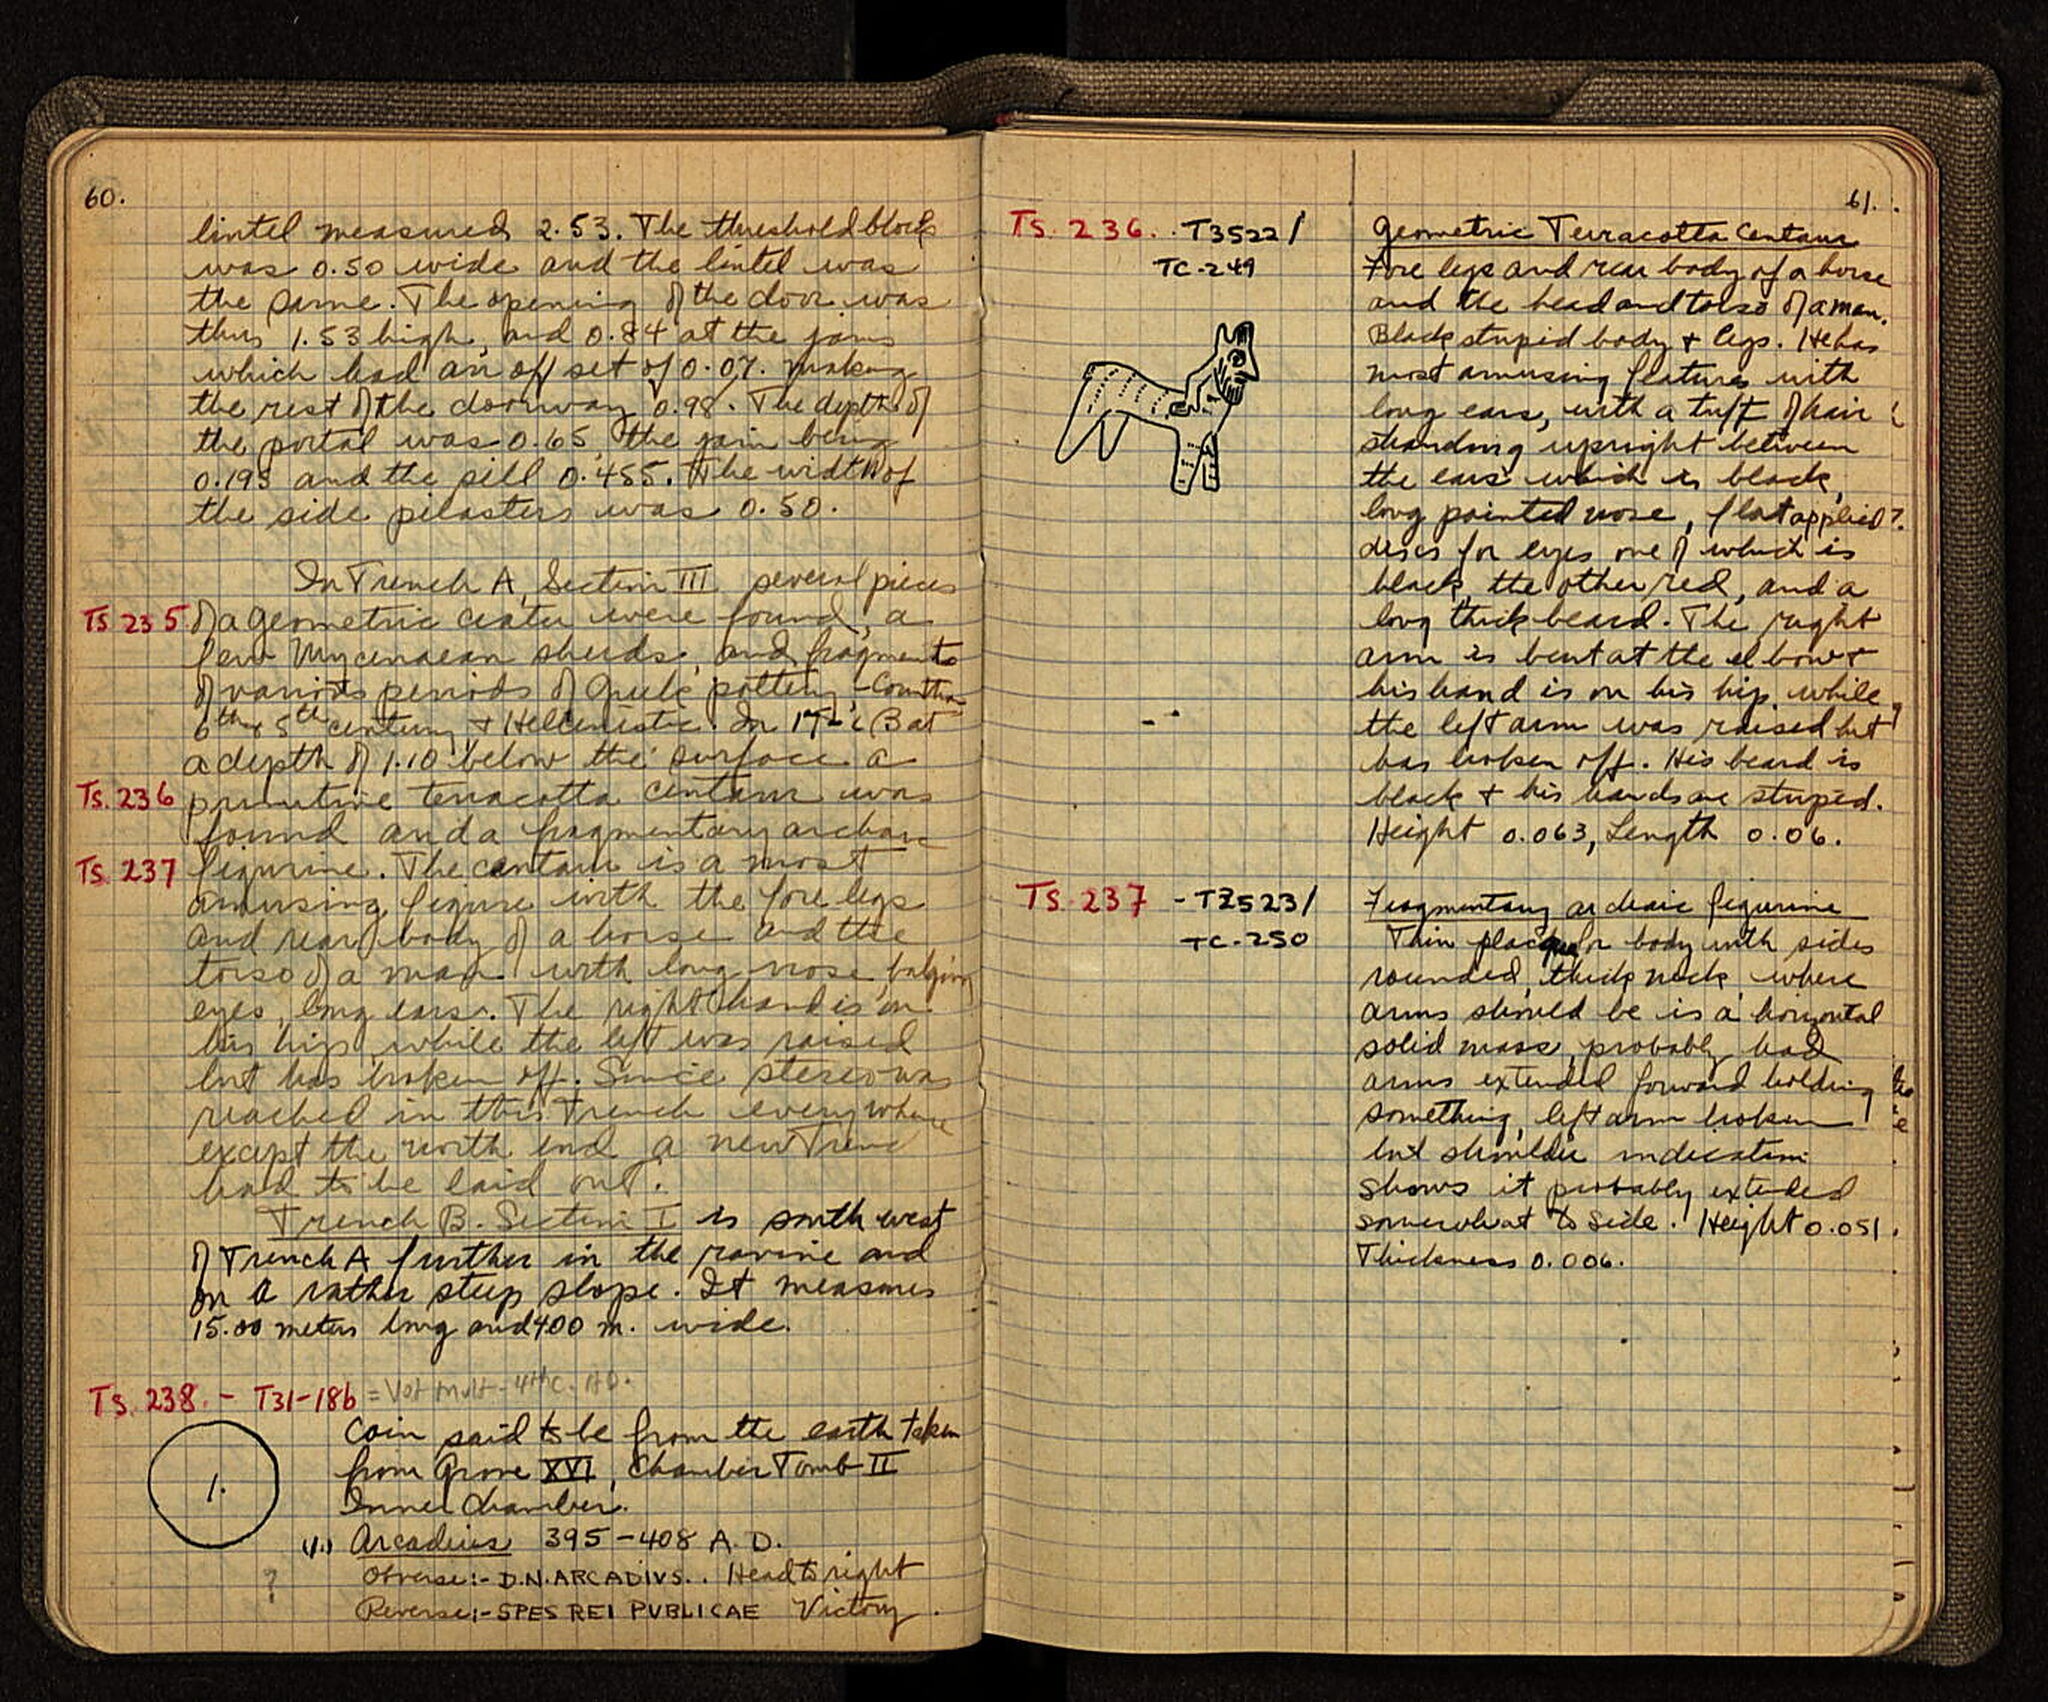 60.
lintel measured 2.53. The threshold block
was 0.50 wide and the lintel was
the same. The opening of the door was
thus 1.53 high, and 0.84 at the jams
which had an off set of 0.07. making
the rest of the doorway 0.98. The depth of
the portal was 0.65, the jam being
0.195 and the sill 0.455. The width of
the side pilasters was 0.50.
In Trench A, Section III several pieces
Ts 235 of a geometric crater were found, a
few Mycenaean sherds, and fragments
of various periods of Greek pottery, - Corinthian
6th & 5th century & Hellenistic. In B at
a depth of 1.10 below the surface a
Ts. 236 primitive terracotta centaur was
found and a fragmentary archaic
Ts. 237 figurine. The centaur is a most
amusing figure with the fore legs
and rear body of a horse and the
torso of a man with long nose bulging
eyes, long ears. The right hand is on
his hip while the left was raised
but has broken off. Since stereo was
reached in this Trench everywhere
except the north end a new Trench
had to be laid out.
Trench B. Section I is south west
of Trench A further in the ravine and
on a rather steep slope. It measures
15.00 meters long and 4.00 m. wide.
Ts. 238. - T31-18b = Vot mult - 4th c. AD.
Coin said to be from the earth taken
from Grove XVI, Chamber Tomb II
1.
Inner Chamber.
(1.) Arcadius 395-408 A.D.
? Obverse:- D.N. ARCADIVS.. Head to right
Reverse:- SPES REI PVBLICAE Victory.
61.
Ts. 236. - T3522/
TC-249
Geometric Terracotta Centaur
Fore legs and rear body of a horse
and the head and torso of a man.
Black striped body & legs. He has
most amusing features with
long ears, with a tuft of hair
standing upright between
the ears which is black,
long pointed nose, flat applied?
discs for eyes one of which is
black, the other red, and a
long thick beard. The right
arm is bent at the elbow &
his hand is on his hip while
the left arm was raised but
has broken off. His beard is
black & his hands are striped.
Height 0.063, Length 0.06.
Ts. 237 - TZ523/
TC-250
Fragmentary archaic figurine
Thin plaque for body with sides
rounded, thick neck, where
arms should be is a horizontal
solid mass, probably had
arms extended forward holding
something, left arm broken
but shoulder indication
shows it probably extended
somewhat to side. Height 0.051.
Thickness 0.006.